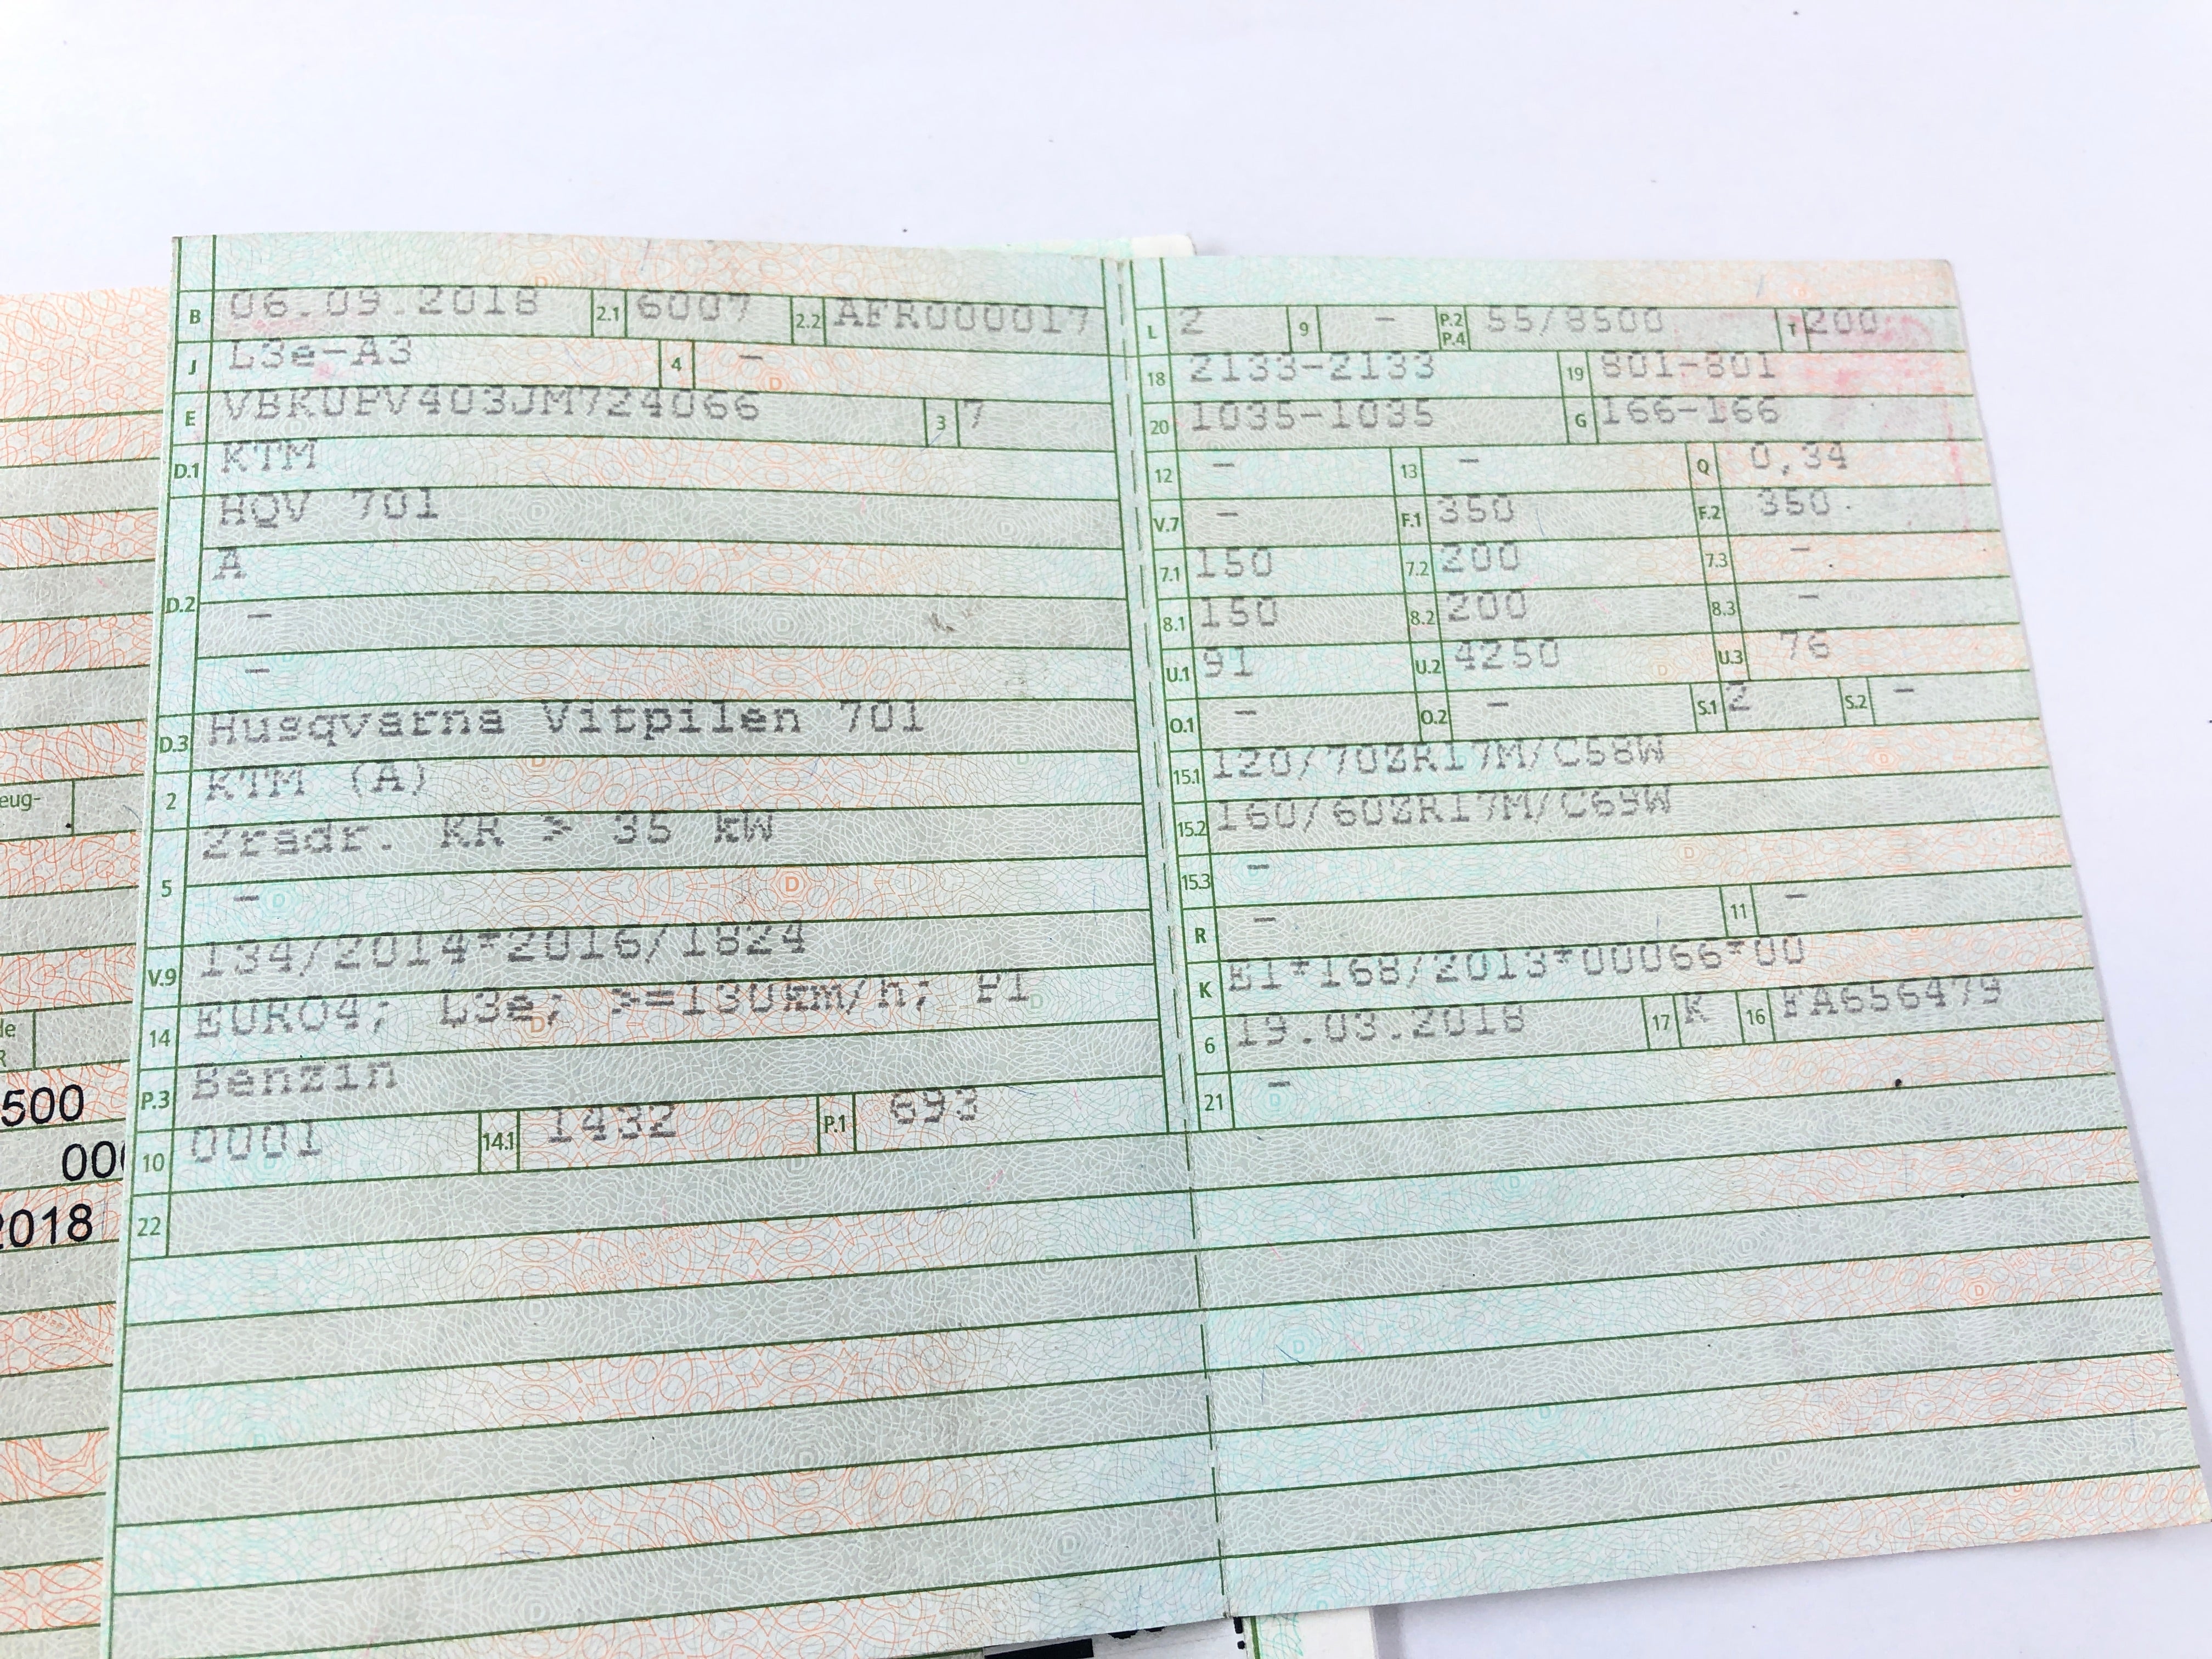 B 06.09.2018 2.1 6007 2.2 AFR000017
J L3e-A3 4 -
E VBKUPV403JM724066 3 7
D.1 KTM
HQV 701
A
D.2 -
-
D.3 Husqvarna Vitpilen 701
2 KTM (A)
Zrädr. KR > 35 kW
5 -
V.9 134/2014*2016/1824
14 EURO4; L3e; >=130km/h; PI
P.3 Benzin
10 0001 14.1 1432 P.1 693
22
L 2 9 - P.2 P.4 55/8500 T 200
18 2133-2133 19 801-801
20 1035-1035 G 166-166
12 - 13 - Q 0,34
V.7 - F.1 350 F.2 350
7.1 150 7.2 200 7.3 -
8.1 150 8.2 200 8.3 -
U.1 91 U.2 4250 U.3 76
O.1 - O.2 - S.1 2 S.2 -
15.1 120/70ZR17M/C58W
15.2 160/60ZR17M/C69W
15.3 -
R - 11 -
K E1*168/2013*00066*00
6 19.03.2018 17 K 16 FA656479
21 -
eug-
de
R
500
00
2018